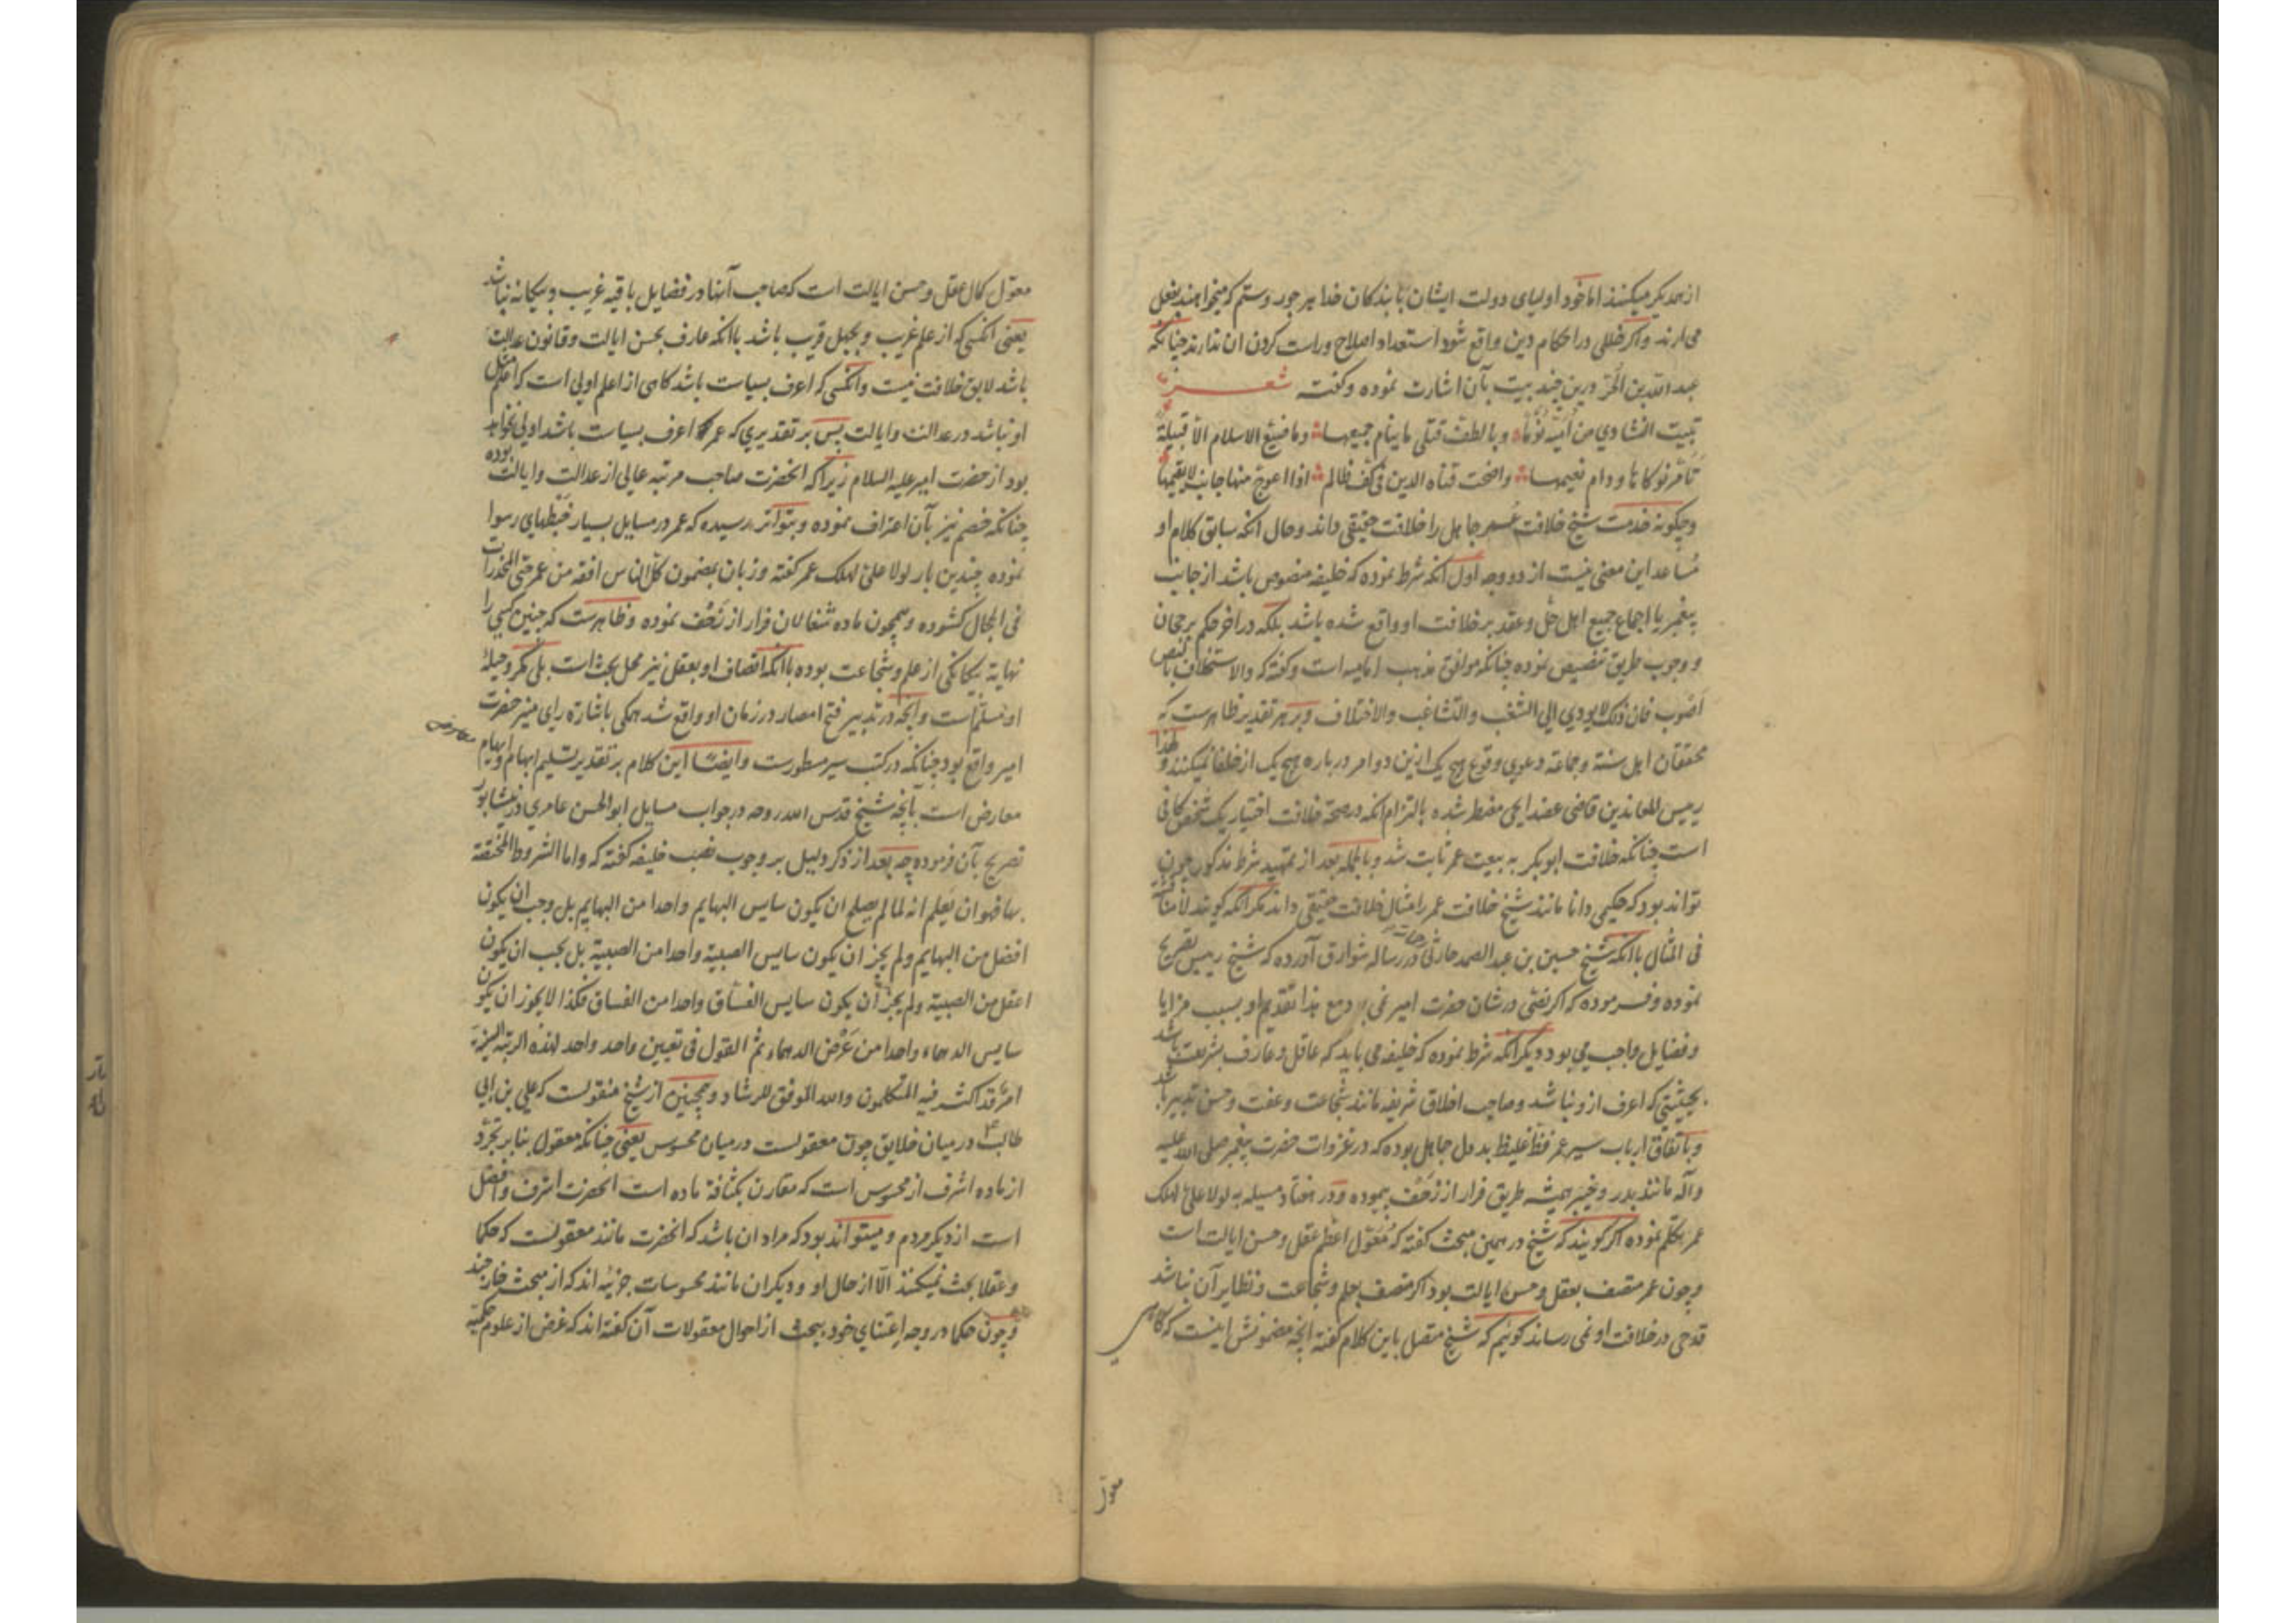 از همدیگر میکنند اما خود اولیای دولت ایشان با بندکان خدا هر جور و ستم که میخواهند بفعل
می ارند و اکر خللی در احکام دین واقع شود استعداد اصلاح و راست کردن ان ندارند چنانکه
عبد الله بن الحر درین چند بیت بآن اشارت نموده و کفت شعر
تبیت النشاوي من امیة نوما و بالطف قتلی ما ینام حمیمها وما ضیع الاسلام الا قبیلة
تامر نوکاها و دام نعیمها واضحت قناة الدین فی کف ظالم اذا اعوج منها جانب لا یقیمها
و چکونه خدمت شیخ خلافت عمر جاهل را خلافت حقیقی داند و حال انکه سابق کلام او
مساعد این معنی نیست از دو وجه اول انکه شرط نموده که خلیفه منصوص باشد از جانب
پیغمبر یا اجماع جمیع اهل حل و عقد بر خلافت او واقع شده باشد بلکه در اخر حکم برجحان
و وجوب طریق تنصیص نموده چنانکه موافق مذهب امامیه است و کفته که والاستخلاف بالنص
اصوب فان ذلک لا یودي الی الشغب والتشاغب والاختلاف و بر هر تقدیر ظاهرست که
محققان اهل سنة و جماعة دعوي وقوع هیچ یک ازین دو امر درباره هیچ یک از خلفا نمیکنند و لهذا
رییس المعاندین قاضی عضد ایجی مضطر شده بالتزام انکه در صحة خلافت اختیار یک شخص کافی
است چنانکه خلافت ابوبکر به بیعت عمر ثابت شد و بالجمله بعد از تمهید شرط مذکور چون
تواند بود که حکیمی دانا مانند شیخ خلافت عمر را مثال خلافت حقیقی داند مکر انکه کویند لا مناقشة
فی المثال با انکه شیخ حسین بن عبد الصمد حارثی در رساله شوارق آورده که شیخ رییس تصریح
نموده و فرموده که اکر نصی در شان حضرت امیر نمی بود مع هذا تقدیم او بسبب مزایا
و فضایل واجب می بود دیکر انکه شرط نموده که خلیفه می باید که عاقل و عارف بشریعت باشد
بحیثیتی که اعرف ازو نباشد و صاحب اخلاق شریفه مانند شجاعت و عفت و حسن تدبیر باشد
و باتفاق ارباب سیر عمر فظ غلیظ بد دل جاهل بوده که در غزوات حضرت پیغمبر صلی الله علیه
وآله مانند بدر و خیبر همیشه طریق فرار از زحف پیموده و در هفتاد مسیله به لولا علی لهلک
عمر تکلم نموده اکر کویند که شیخ در همین مبحث کفته که معول اعظم عقل و حسن ایالت است
و چون عمر متصف بعقل و حسن ایالت بود اکر متصف بعلم و شجاعت و نظایر آن نباشد
قدحی در خلافت او نمی رساند کوییم که شیخ متصل باین کلام کفته انچه مضمونش اینست که کاهی
معول
معول کمال عقل و حسن ایالت است که صاحب آنها در فضایل باقیه غریب و بیکانه نباشد
یعنی انکسی که از علم غریب و بجهل قریب باشد با انکه عارف بحسن ایالت و قانون عدالت
باشد لایق خلافت نیست و انکسی که اعرف بسیاست باشد کاهی از اعلم اولی است که اعلم مثل
او نباشد در عدالت و ایالت پس بر تقدیري که عمر اعرف بسیاست باشد اولی نخواهد
بود از حضرت امیر علیه السلام زیرا که انحضرت صاحب مرتبه عالی از عدالت و ایالت بوده
چنانکه خصم نیز بآن اعتراف نموده و بتواتر رسیده که عمر در مسایل بسیار خبطهای رسوا
نموده چندین بار لولا علی لهلک عمر کفته و زبان بمضمون کل الناس افقه من عمر حتی المخدرات
فی الحجال کشوده و همچون ماده شغالان فرار از زحف نموده و ظاهرست که چنین کسی را
نهایة بیکانکی از علم و شجاعت بوده با انکه اتصاف او بعقل نیز محل بحث است بلی مکر و حیلهٔ
او مسلم است و انچه در تدبیر فتح امصار در زمان او واقع شد همکی باشاره راي منیر حضرت
امیر واقع بود چنانکه در کتب سیر مسطورست و ایضا این کلام بر تقدیر تسلیم ابهام و ایهام
معارض
معارض است بآنچه شیخ قدس الله روحه در جواب مسایل ابو الحسن عامري در نیشابور
تصریح بآن فرموده چه بعد از ذکر دلیل بر وجوب نصب خلیفه کفته که واما الشروط المختصة
بها فهو ان یعلم انه لما لم یصلح ان یکون سایس البهایم واحدا من البهایم بل وجب ان یکون
افضل من البهایم ولم یجز ان یکون سایس الصبیة واحدا من الصبیة بل یجب ان یکون
اعقل من الصبیة ولم یجز ان یکون سایس الفساق واحدا من الفساق فکذا لا یجوز ان یکون
سایس الدهماء واحدا من عرض الدهماء ثم القول فی تعیین واحد واحد لهذه الرتبة
امر قد اکثر فیه المتکلمون والله الموفق للرشاد و همچنین از شیخ منقولست که علی بن ابی
طالب در میان خلایق چون معقولست در میان محسوس یعنی چنانکه معقول بنا بر تجرد
از ماده اشرف از محسوس است که مقارن بکثافة ماده است انحضرت اشرف و افضل
است از دیکر مردم و میتواند بود که مراد ان باشد که انحضرت مانند معقولست که حکما
و عقلا بحث نمیکنند الا از حال او و دیکران مانند محسوسات جزئیه اند که از مبحث خارجند
و چون حکما در وجه اعتناي خود ببحث از احوال معقولات آن کفته اند که غرض از علوم حکمیة